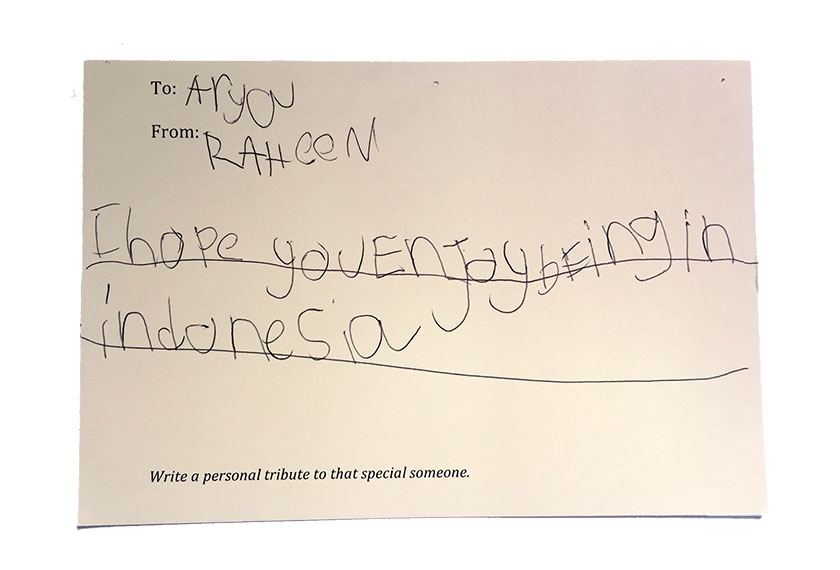 To: Aryou
From: RAHeeN
I hope you ENjoy bEing in
indonesia
Write a personal tribute to that special someone.